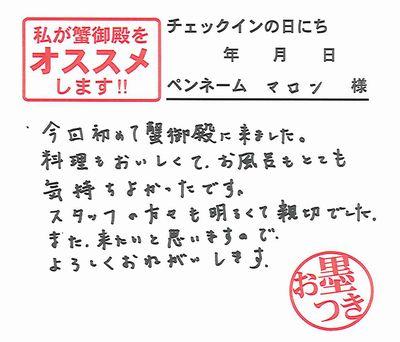 私が蟹御殿を
オススメ
します!!
チェックインの日にち
年 月 日
ペンネーム マロン 様
今回初めて蟹御殿に来ました。
料理もおいしくて、お風呂もとても
気持ちよかったです。
スタッフの方々も明るくて親切でした。
また、来たいと思いますので、
よろしくおねがいします。
お墨つき